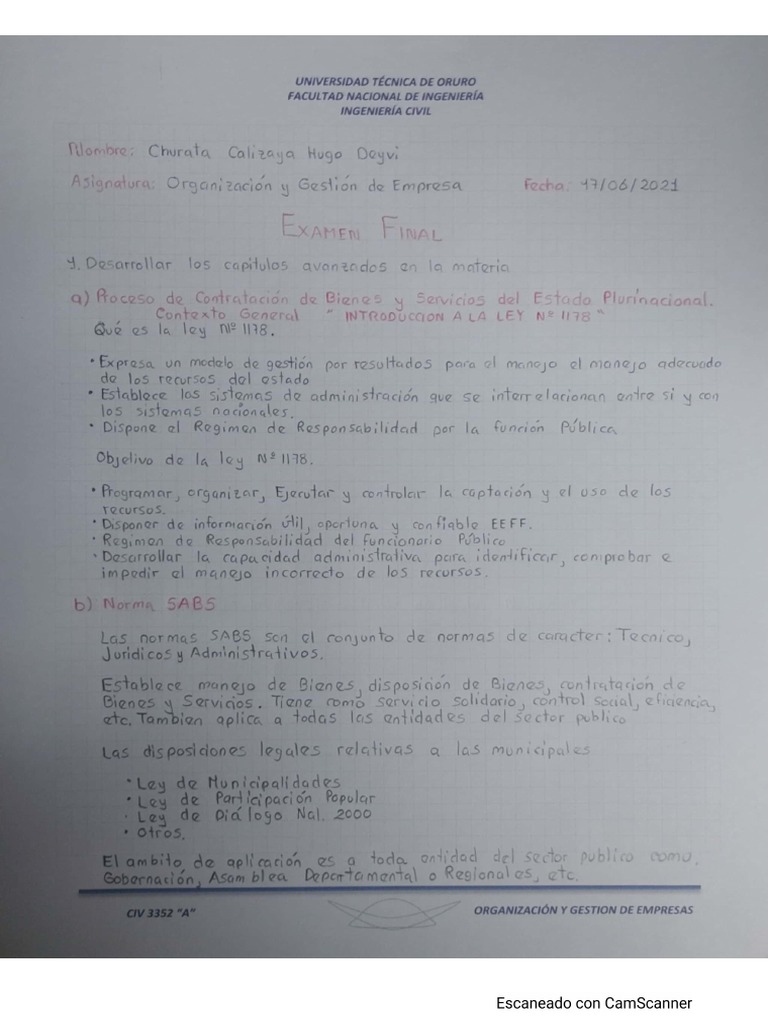 UNIVERSIDAD TÉCNICA DE ORURO
FACULTAD NACIONAL DE INGENIERÍA
INGENIERÍA CIVIL
Nombre: Churata Calizaya Hugo Deyvi
Asignatura: Organización y Gestión de Empresa Fecha: 17/06/2021
EXAMEN FINAL
1. Desarrollar los capitulos avanzados en la materia
a) Proceso de Contratación de Bienes y Servicios del Estado Plurinacional.
Contexto General "INTRODUCCION A LA LEY Nº 1178"
Qué es la ley Nº 1178.
• Expresa un modelo de gestión por resultados para el manejo el manejo adecuado
de los recursos del estado
• Establece los sistemas de administración que se interrelacionan entre si y con
los sistemas nacionales.
• Dispone el Regimen de Responsabilidad por la función Pública
Objetivo de la ley Nº 1178.
• Programar, organizar, Ejecutar y controlar la captación y el uso de los
recursos.
• Disponer de información útil, oportuna y confiable EEFF.
• Regimen de Responsabilidad del funcionario Público
• Desarrollar la capacidad administrativa para identificar, comprobar e
impedir el manejo incorrecto de los recursos.
b) Norma SABS
Las normas SABS son el conjunto de normas de caracter: Tecnico,
Juridicos y Administrativos.
Establece manejo de Bienes, disposición de Bienes, contratación de
Bienes y Servicios. Tiene como servicio solidario, control social, eficiencia,
etc. Tambien aplica a todas las entidades del sector publico
Las disposiciones legales relativas a las municipales
• Ley de Municipalidades
• Ley de Participación Popular
• Ley de Diálogo Nal. 2000
• Otros.
El ambito de aplicación es a toda entidad del sector publico como,
Gobernación, Asamblea Departamental o Regionales, etc.
CIV 3352 "A" ORGANIZACIÓN Y GESTION DE EMPRESAS
Escaneado con CamScanner